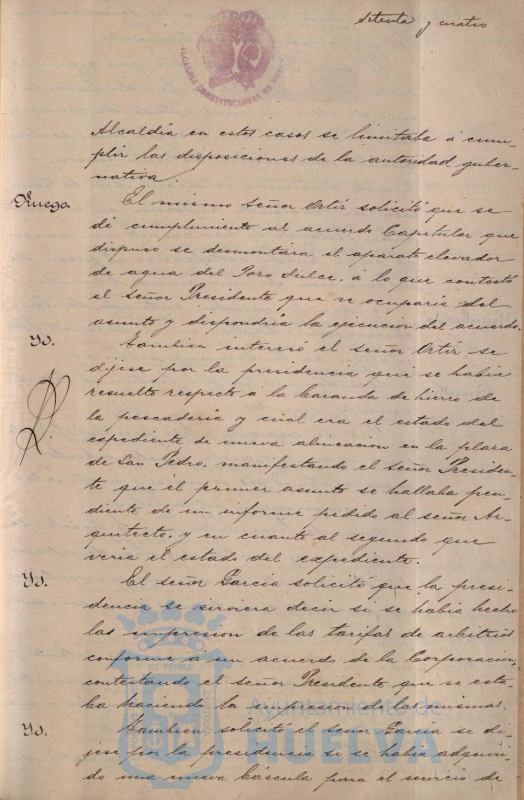 Setenta y cuatro
ALCALDIA CONSTITUCIONAL DE
Alcaldía en estos casos se limitaba á cum-
plir las disposiciones de la autoridad guber-
nativa.
Ruego. El mismo señor Ortiz solicitó que se
dé cumplimiento al acuerdo Capitular que
dispuso se desmontára el aparato elevador
de agua del Pozo dulce, á lo que contestó
el señor Presidente que se ocuparia del
asunto y dispondria la ejecucion del acuerdo.
Yd. Tambien interesó el señor Ortiz se
dijese por la presidencia que se habia
resuelto respecto á la baranda de hierro de
la pescaderia y cual era el estado del
expediente de nueva alineacion en la plaza
de San Pedro, manifestando el señor Presiden-
te que el primer asunto se hallaba pen-
diente de un informe pedido al señor Ar-
quitecto, y en cuanto al segundo que
veria el estado del expediente.
Yd. El señor García solicitó que la presi-
dencia se sirviera decir si se habia hecho
las impresion de las tarifas de arbitrios
conforme á un acuerdo de la Corporacion,
contestando el señor Presidente que se esta-
ba haciendo la impresion de las mismas.
Yd. Tambien solicitó el señor García se di-
jese por la presidencia si se habia adquiri-
do una nueva báscula para el servicio de
Ayuntamiento de
HUELVA